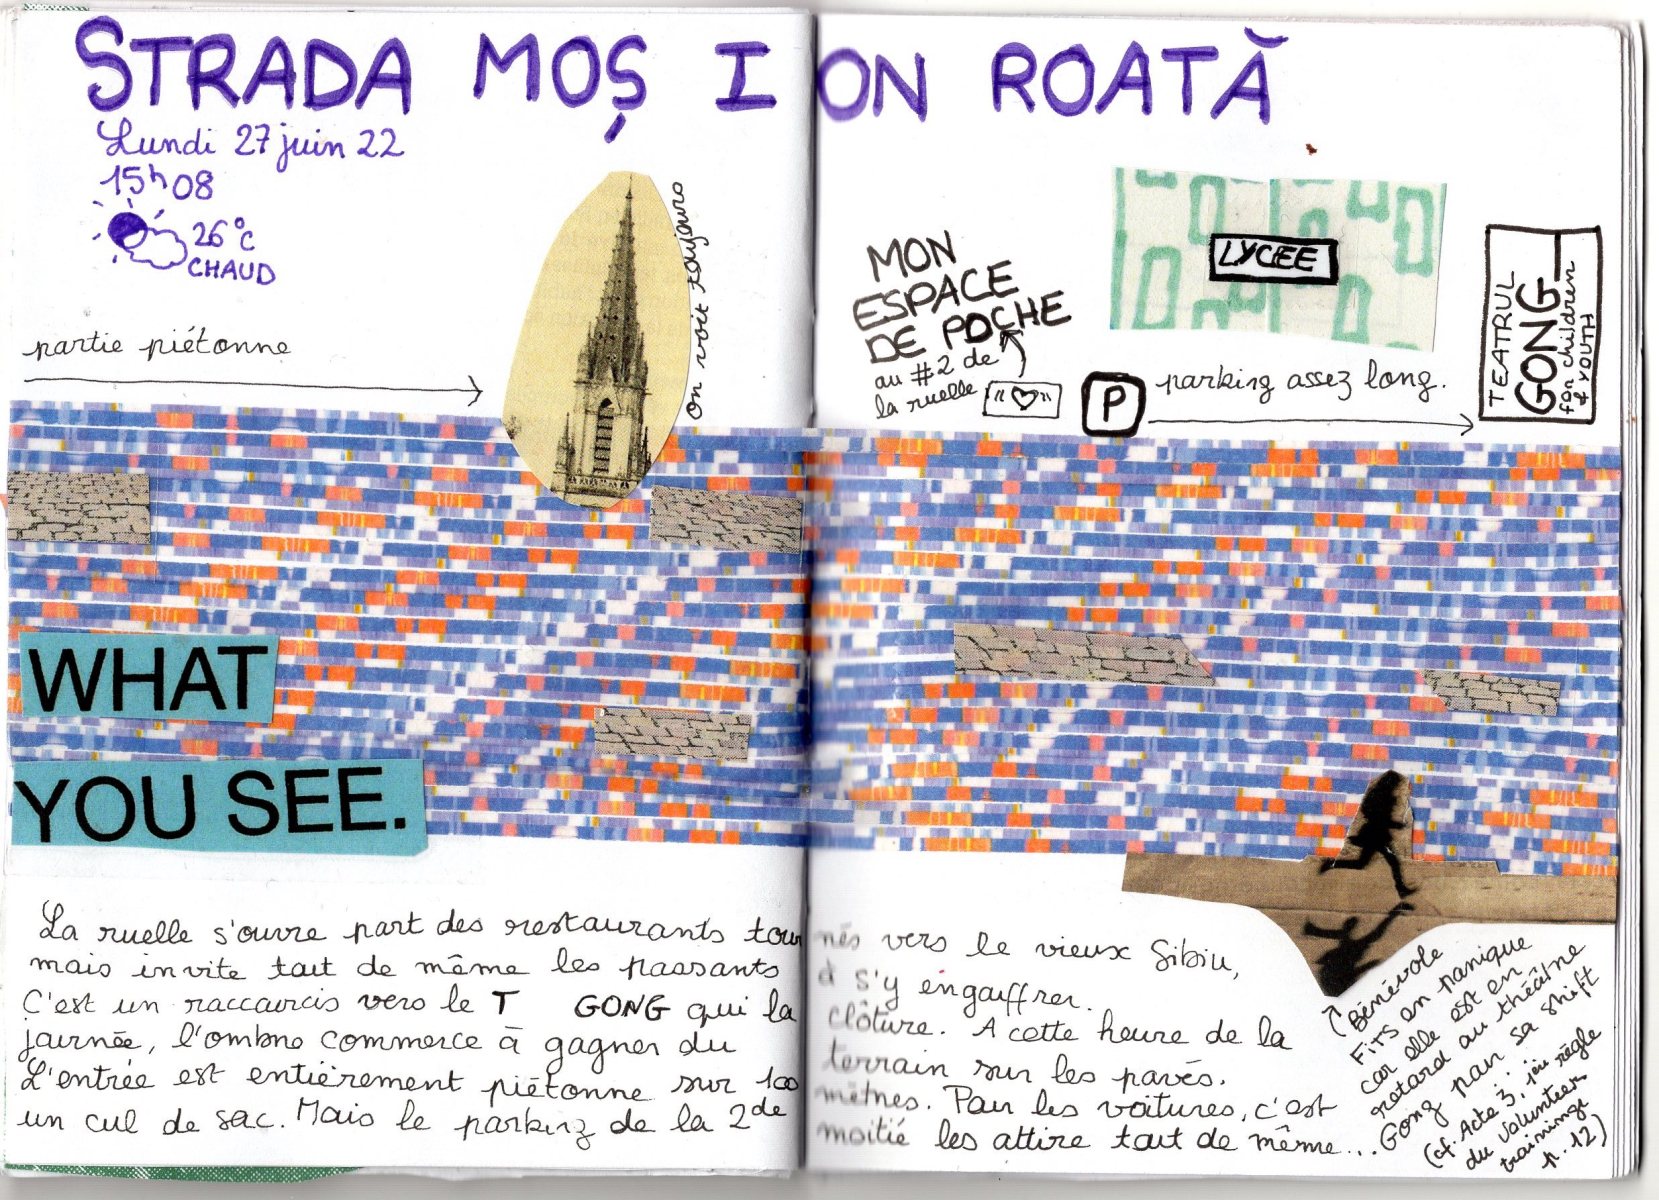 STRADA MOȘ ION ROATĂ
Lundi 27 juin 22
15h08
26°C
CHAUD
partie piétonne
on voit toujours
MON
ESPACE
DE POCHE
au #2 de
la ruelle
"♡"
LYCEE
P
parking assez long.
TEATRUL
GONG
for children
& YOUTH
WHAT
YOU SEE.
La ruelle s'ouvre part des restaurants tournés vers le vieux Sibiu,
mais invite tout de même les passants à s'y engouffrer.
C'est un raccourcis vers le T GONG qui la clôture. A cette heure de la
journée, l'ombre commence à gagner du terrain sur les pavés.
L'entrée est entièrement piétonne sur 100 mètres. Pour les voitures, c'est
un cul de sac. Mais le parking de la 2de moitié les attire tout de même...
Bénévole
FITS en panique
car elle est en
retard au théâtre
Gong pour sa shift
(cf. Acte 3, jeu règle
du volunteers
trainings
p. 12)